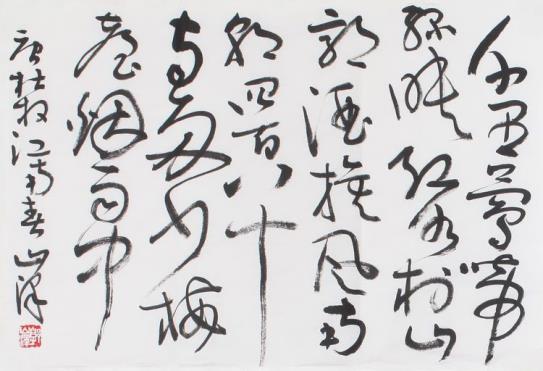 千里莺啼
绿映红水村山
郭酒旗风南
朝四百八十
寺多少楼
臺烟雨中
唐杜牧江南春山